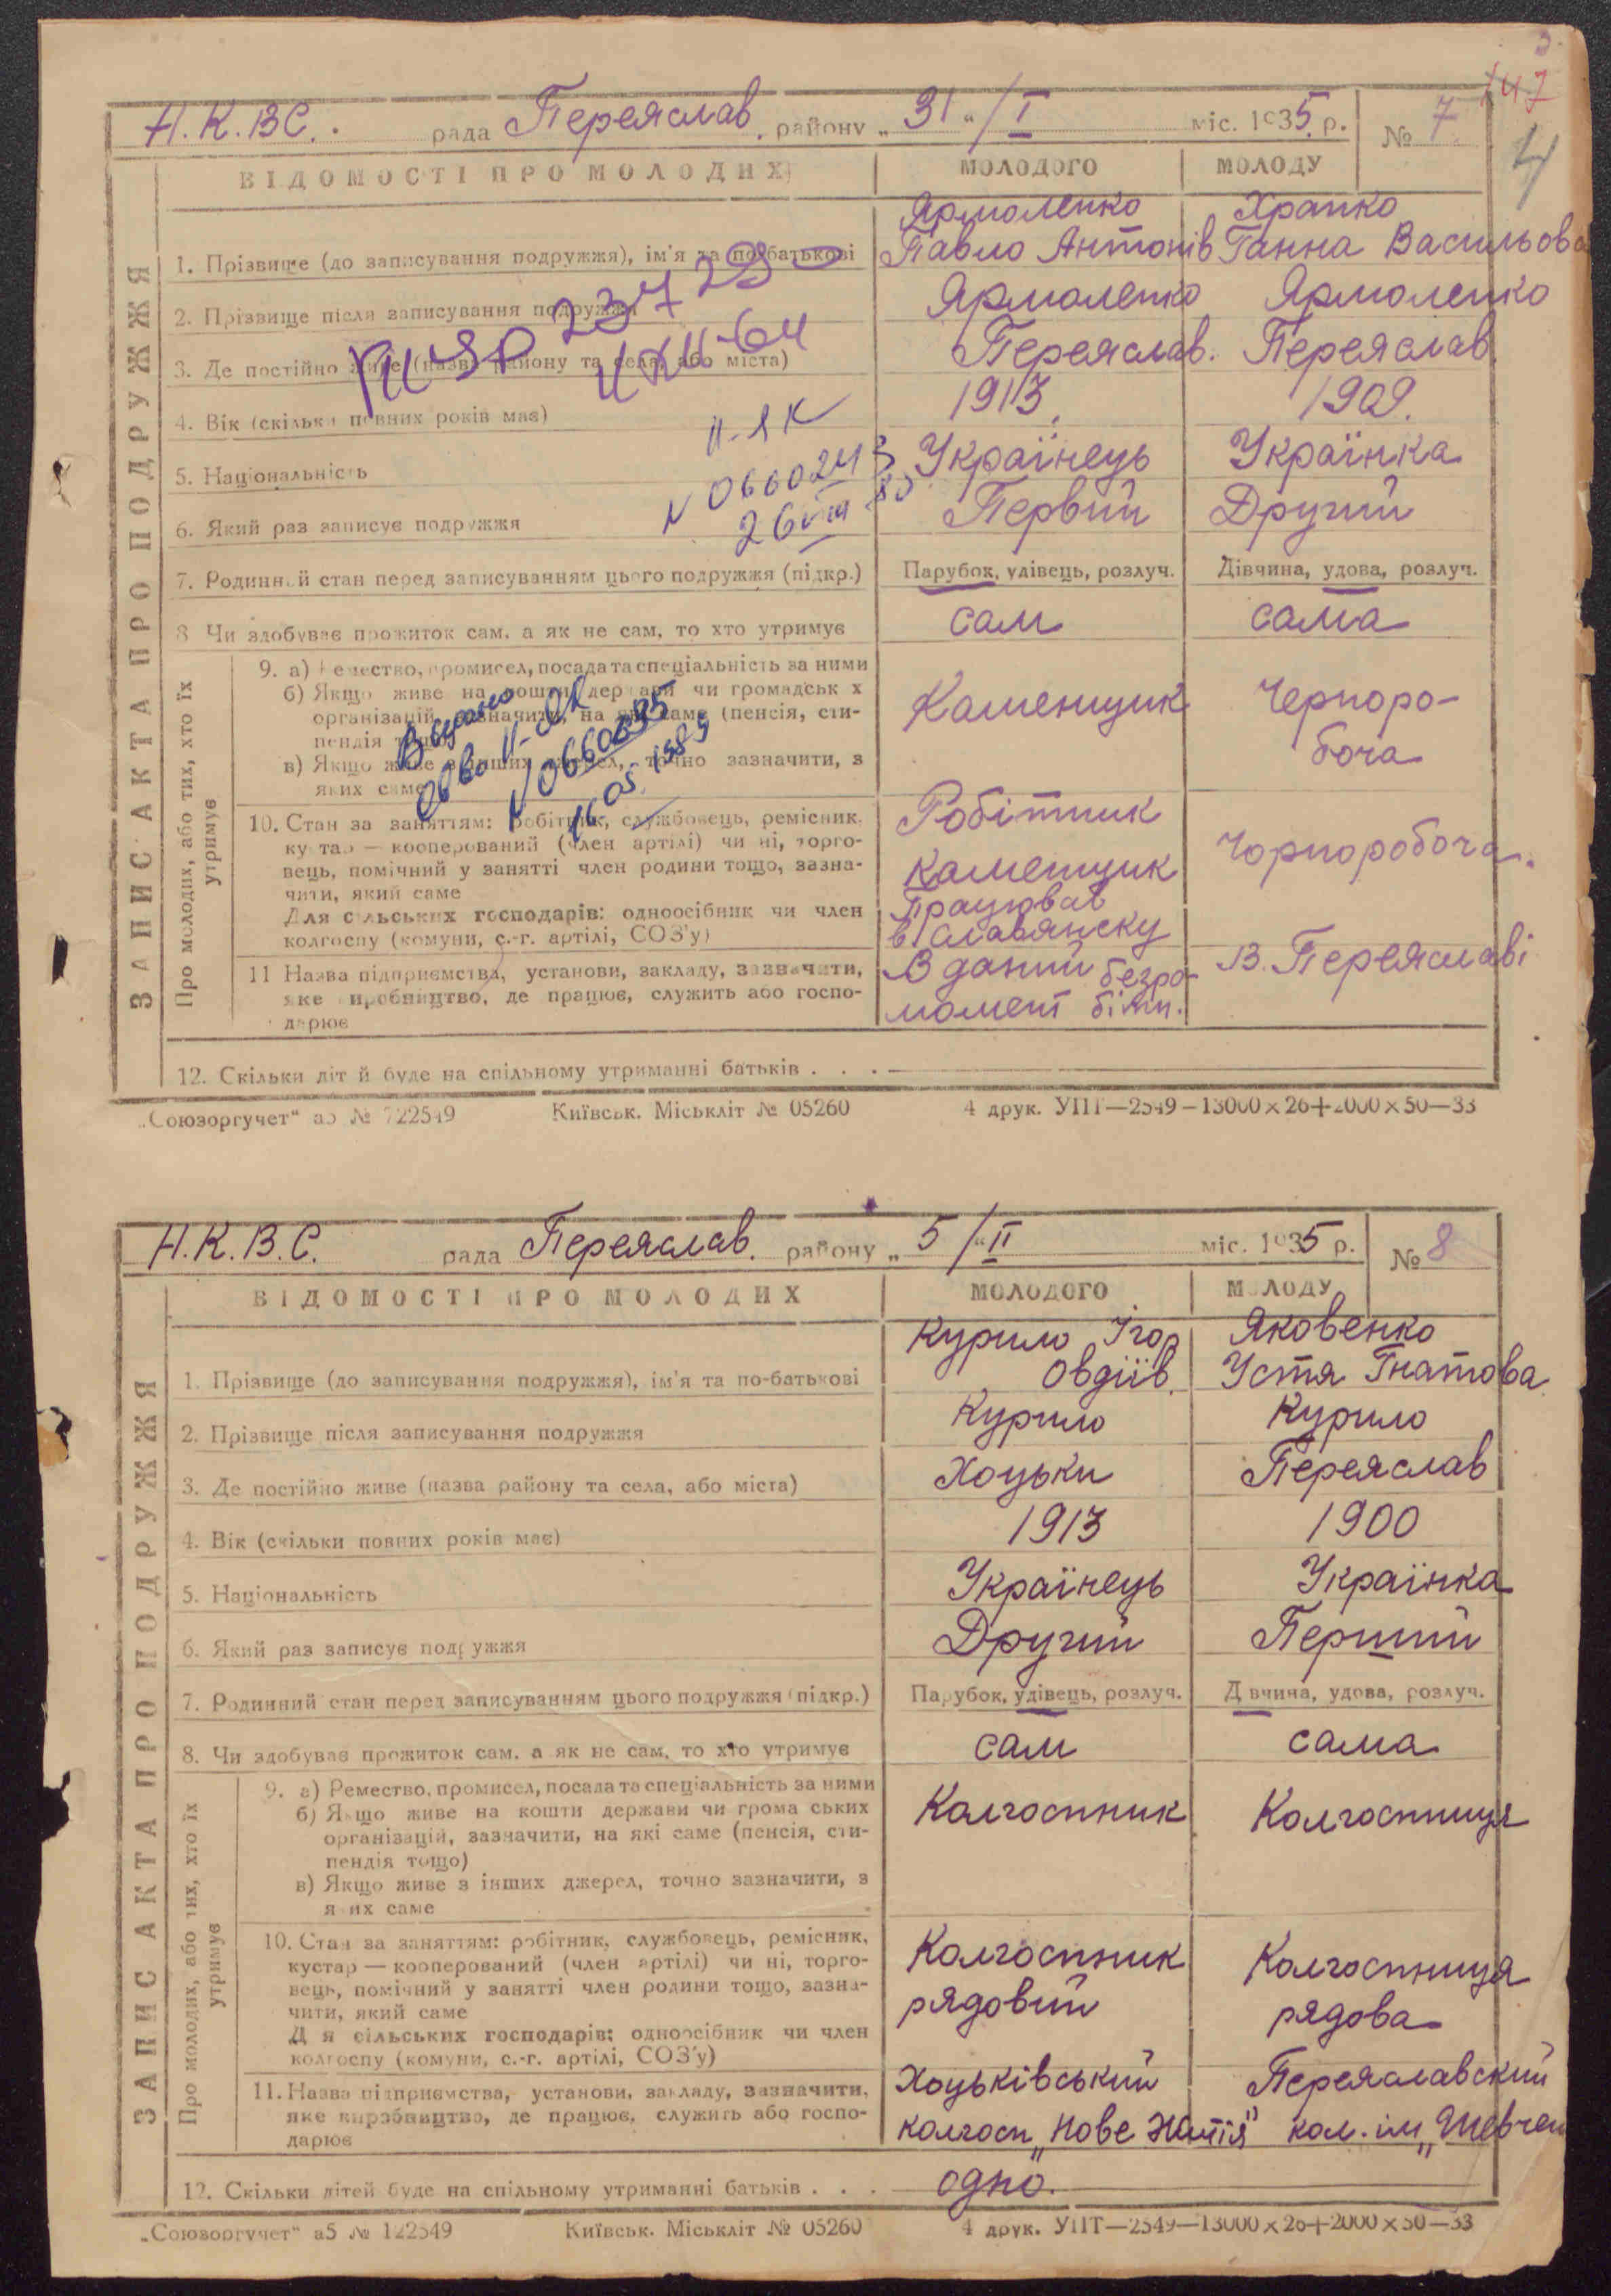 147
4
Н.К.ВС. рада Переяслав. району „31“/I міс. 1935 р. № 7.
ВІДОМОСТІ ПРО МОЛОДИХ МОЛОДОГО МОЛОДУ
ЗАПИС АКТА ПРО ПОДРУЖЖЯ
Ярмоленко Храпко
1. Прізвище (до записування подружжя), ім'я та по-батькові Павло Антонів Ганна Васильова
2. Прізвище після записування подружжя Ярмоленко Ярмоленко
3. Де постійно живе (назва району та села, або міста) Переяслав. Переяслав.
4. Вік (скільки повних років має) 1913. 1909.
5. Національність Українець Українка
6. Який раз записує подружжя Первий Другий
7. Родинний стан перед записуванням цього подружжя (підкр.) Парубок, удівець, розлуч. Дівчина, удова, розлуч.
8 Чи здобуває прожиток сам, а як не сам, то хто утримує сам сама
Про молодих, або тих, хто їх утримує
9. а) Ремество, промисел, посада та спеціальність за ними
б) Якщо живе на кошти держави чи громадськ х
організацій, зазначити, на які саме (пенсія, сти-
пендія тощо)
в) Якщо живе з інших джерел, точно зазначити, з
яких саме
Каменщик Черноро-
боча
10. Стан за заняттям: робітник, службовець, ремісник,
кустар — кооперований (член артілі) чи ні, торго-
вець, помічний у занятті член родини тощо, зазна-
чити, який саме
Для сільських господарів: одноосібник чи член
колгоспу (комуни, с.-г. артілі, СОЗ'у)
Робітник
каменщик Чорноробоча.
працював
в Славянску
11 Назва підприємства, установи, закладу, зазначити,
яке виробництво, де працює, служить або госпо-
дарює
В даний безро-
момент бітн.
В. Переяславі
12. Скільки літ й буде на спільному утриманні батьків . . .
237 29
4 XII-64
II-ЯК
N 0660243
26 VIII 80
Видано
II-ЯК
N 0660835
16 05. 1985
„Союзоргучет“ а5 № 122549 Київськ. Міськліт № 05260 4 друк. УПТ—2549—13000×26+2000×50—33
Н.К.В.С. рада Переяслав. району „5“/II міс. 1935 р. № 8
ВІДОМОСТІ ПРО МОЛОДИХ МОЛОДОГО МОЛОДУ
ЗАПИС АКТА ПРО ПОДРУЖЖЯ
Курило Ігор Яковенко
1. Прізвище (до записування подружжя), ім'я та по-батькові Овдіїв. Устя Гнатова
2. Прізвище після записування подружжя Курило Курило
3. Де постійно живе (назва району та села, або міста) Хоцьки Переяслав
4. Вік (скільки повних років має) 1913 1900
5. Національність Українець Українка
6. Який раз записує подружжя Другий Перший
7. Родинний стан перед записуванням цього подружжя (підкр.) Парубок, удівець, розлуч. Д вчина, удова, розлуч.
8. Чи здобуває прожиток сам, а як не сам, то хто утримує сам сама
Про молодих, або тих, хто їх утримує
9. а) Ремество, промисел, посада та спеціальність за ними
б) Якщо живе на кошти держави чи грома ських
організацій, зазначити, на які саме (пенсія, сти-
пендія тощо)
в) Якщо живе з інших джерел, точно зазначити, з
яких саме
Колгоспник Колгоспниця
10. Стан за заняттям: робітник, службовець, ремісник,
кустар — кооперований (член артілі) чи ні, торго-
вець, помічний у занятті член родини тощо, зазна-
чити, який саме
Д я сільських господарів: одноосібник чи член
колгоспу (комуни, с.-г. артілі, СОЗ'у)
Колгоспник Колгоспниця
рядовий рядова
11. Назва підприємства, установи, закладу, зазначити,
яке виробництво, де працює, служить або госпо-
дарює
Хоцьківський Переяславский
колгосп „Нове Життя“ кол. ім. „Шевчен
12. Скільки дітей буде на спільному утриманні батьків . . . одно.
„Союзоргучет“ а5 № 122549 Київськ. Міськліт № 05260 4 друк. УПТ—2549—13000×26+2000×50—33